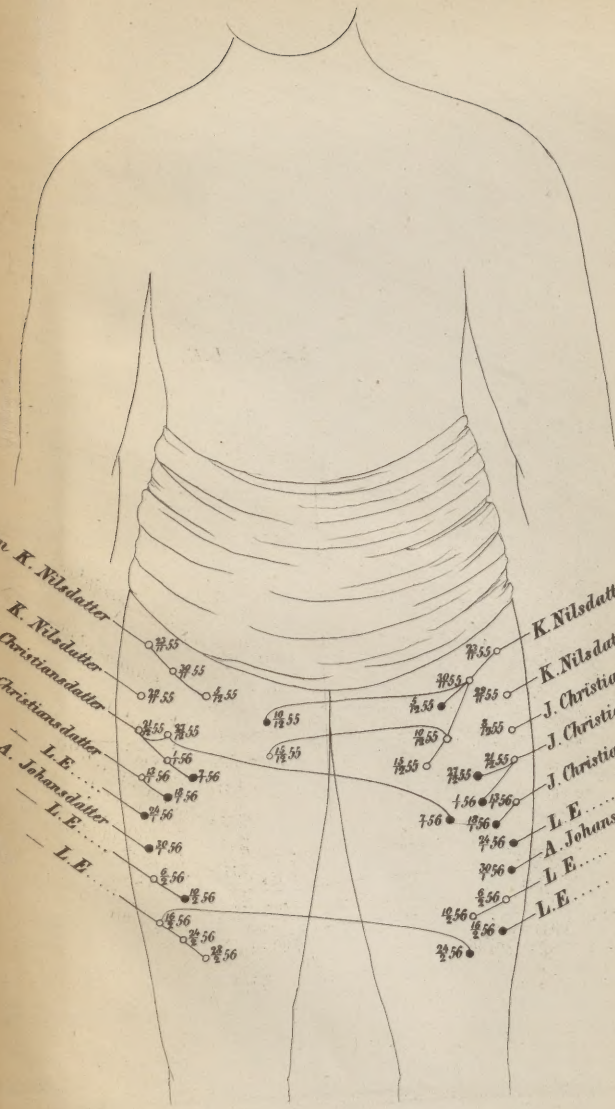 K. Nilsdatter
K. Nilsdatter
Christiansdatter
Christiansdatter
L. E.....
A. Johansdatter
L. E.....
L. E....
22/11 55
30/11 55
4/12 55
29/11 55
21/12 55
27/12 55
1/1 56
13/1 56
7/1 56
18/1 56
24/1 56
30/1 56
6/2 56
10/2 56
16/2 56
24/2 56
28/2 56
10/12 55
15/12 55
22/11 55
30/11 55
4/12 55
29/11 55
8/12 55
10/12 55
15/12 55
21/12 55
27/12 55
1/1 56
13/1 56
7/1 56
18/1 56
24/1 56
30/1 56
6/2 56
10/2 56
16/2 56
24/2 56
K. Nilsdatt
K. Nilsdat
J. Christia
J. Christia
J. Christia
L. E.....
A. Johans
L. E....
L. E....